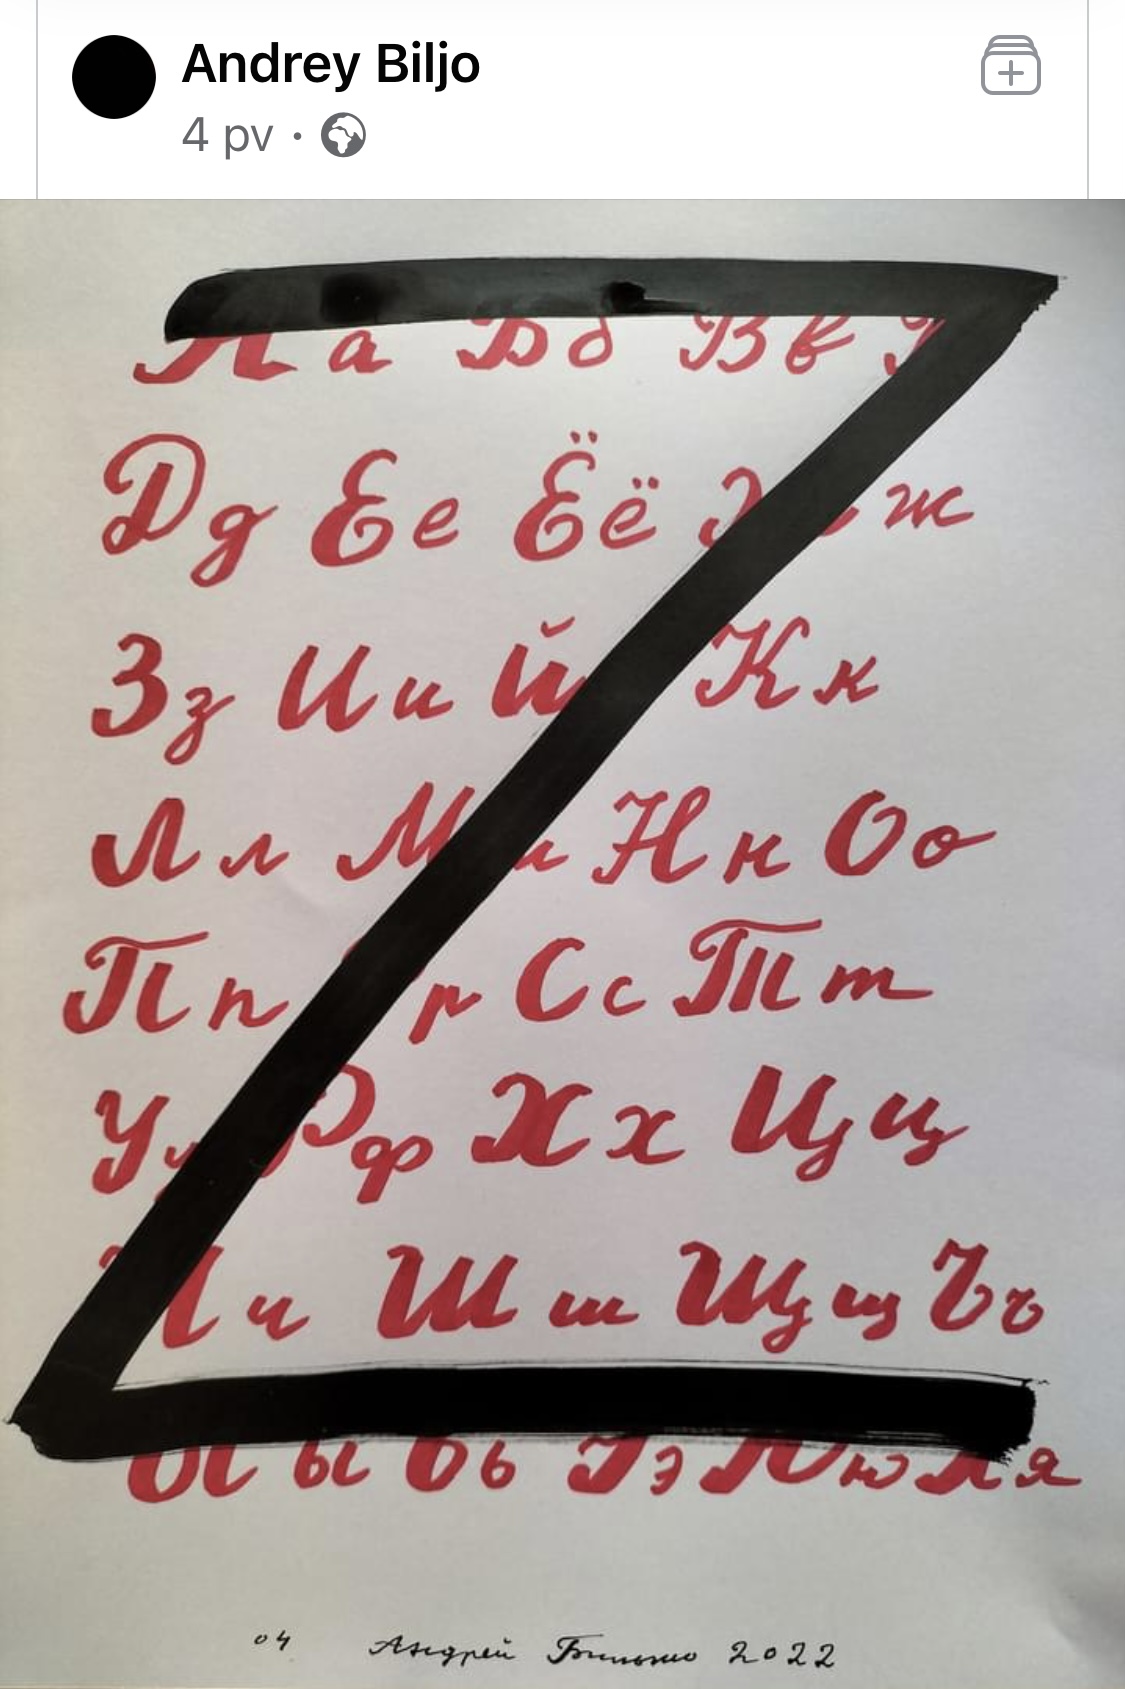 Andrey Biljo
4 pv ·
Z
А а Б б В в Г
Д д Е е Ё ё Ж ж
З з И и Й К к
Л л М м Н н О о
П п р С с Т т
У у Ф ф Х х Ц ц
Ч ч Ш ш Щ щ Ъ ъ
Ы ы Ь ь Э э Ю ю Я я
04 Андрей Бильжо 2022